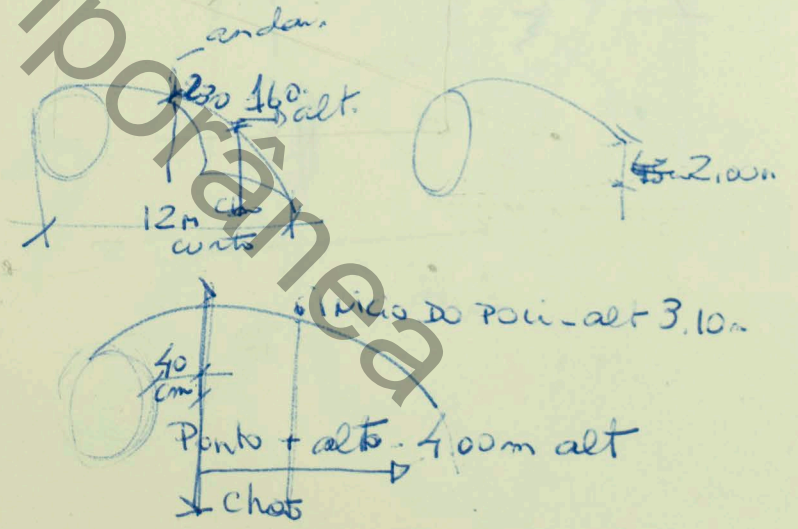 andar.
230 160
alt.
12m chão
curto
2,00m
início do poli - alt 3.10m
40
cm
Ponto + alto - 4.00m alt
Chão
porânea